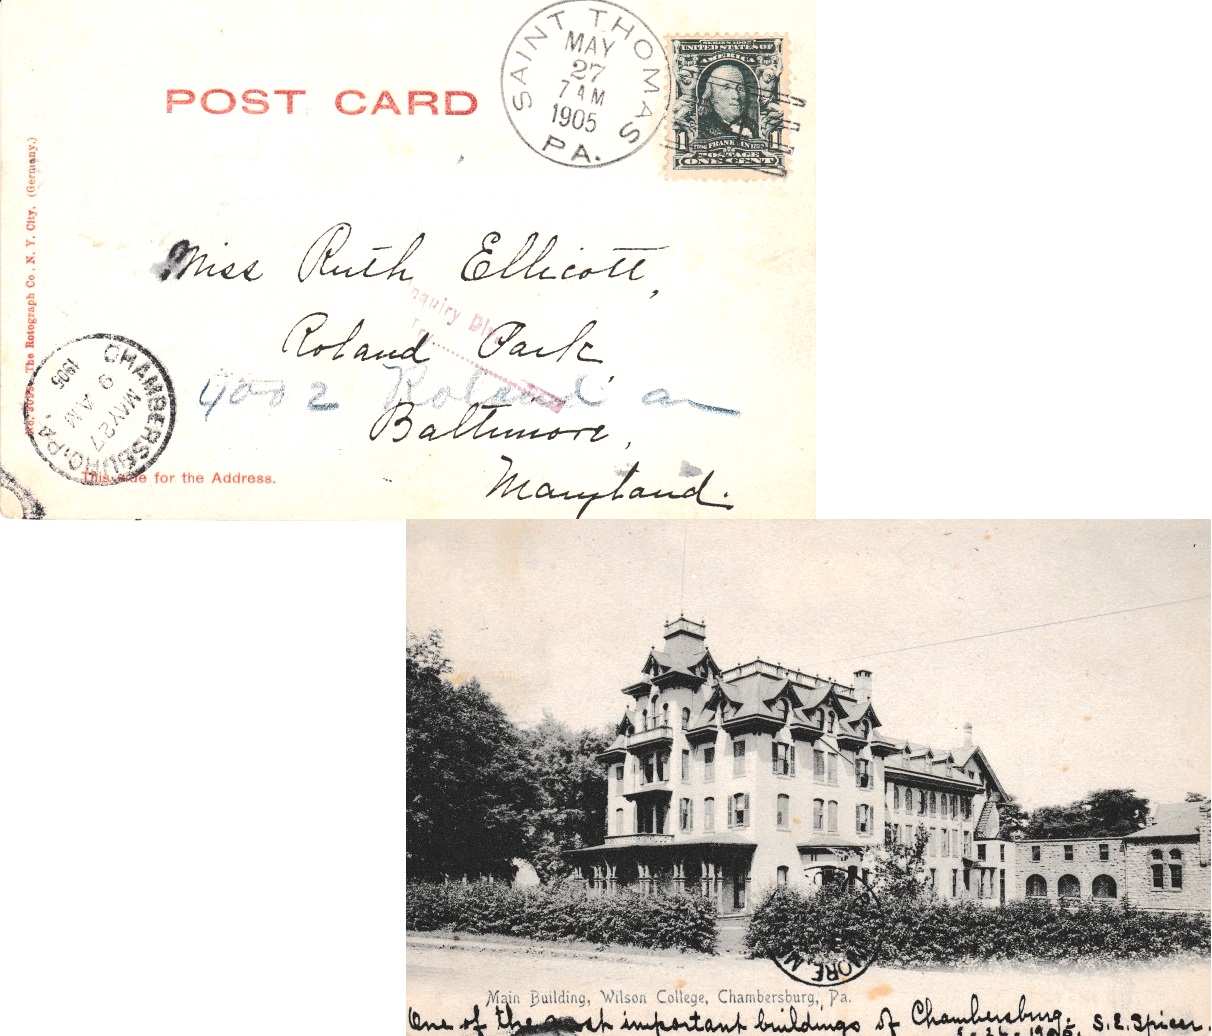 POST CARD
SAINT THOMAS
MAY
27
7 AM
1905
PA.
SERIES 1902
UNITED STATES OF
AMERICA
1 1
FRANKLIN
POSTAGE
ONE CENT
Miss Ruth Ellicott,
Inquiry Div.
Roland Park,
4002 Roland av
Baltimore,
Maryland.
The Rotograph Co., N. Y. City. (Germany.)
CHAMBERSBURG, PA.
MAY 27
9 AM
1905
This side for the Address.
MORE, M
Main Building, Wilson College, Chambersburg, Pa.
One of the most important buildings of Chambersburg.
5-26-1905. S. E. Spicer